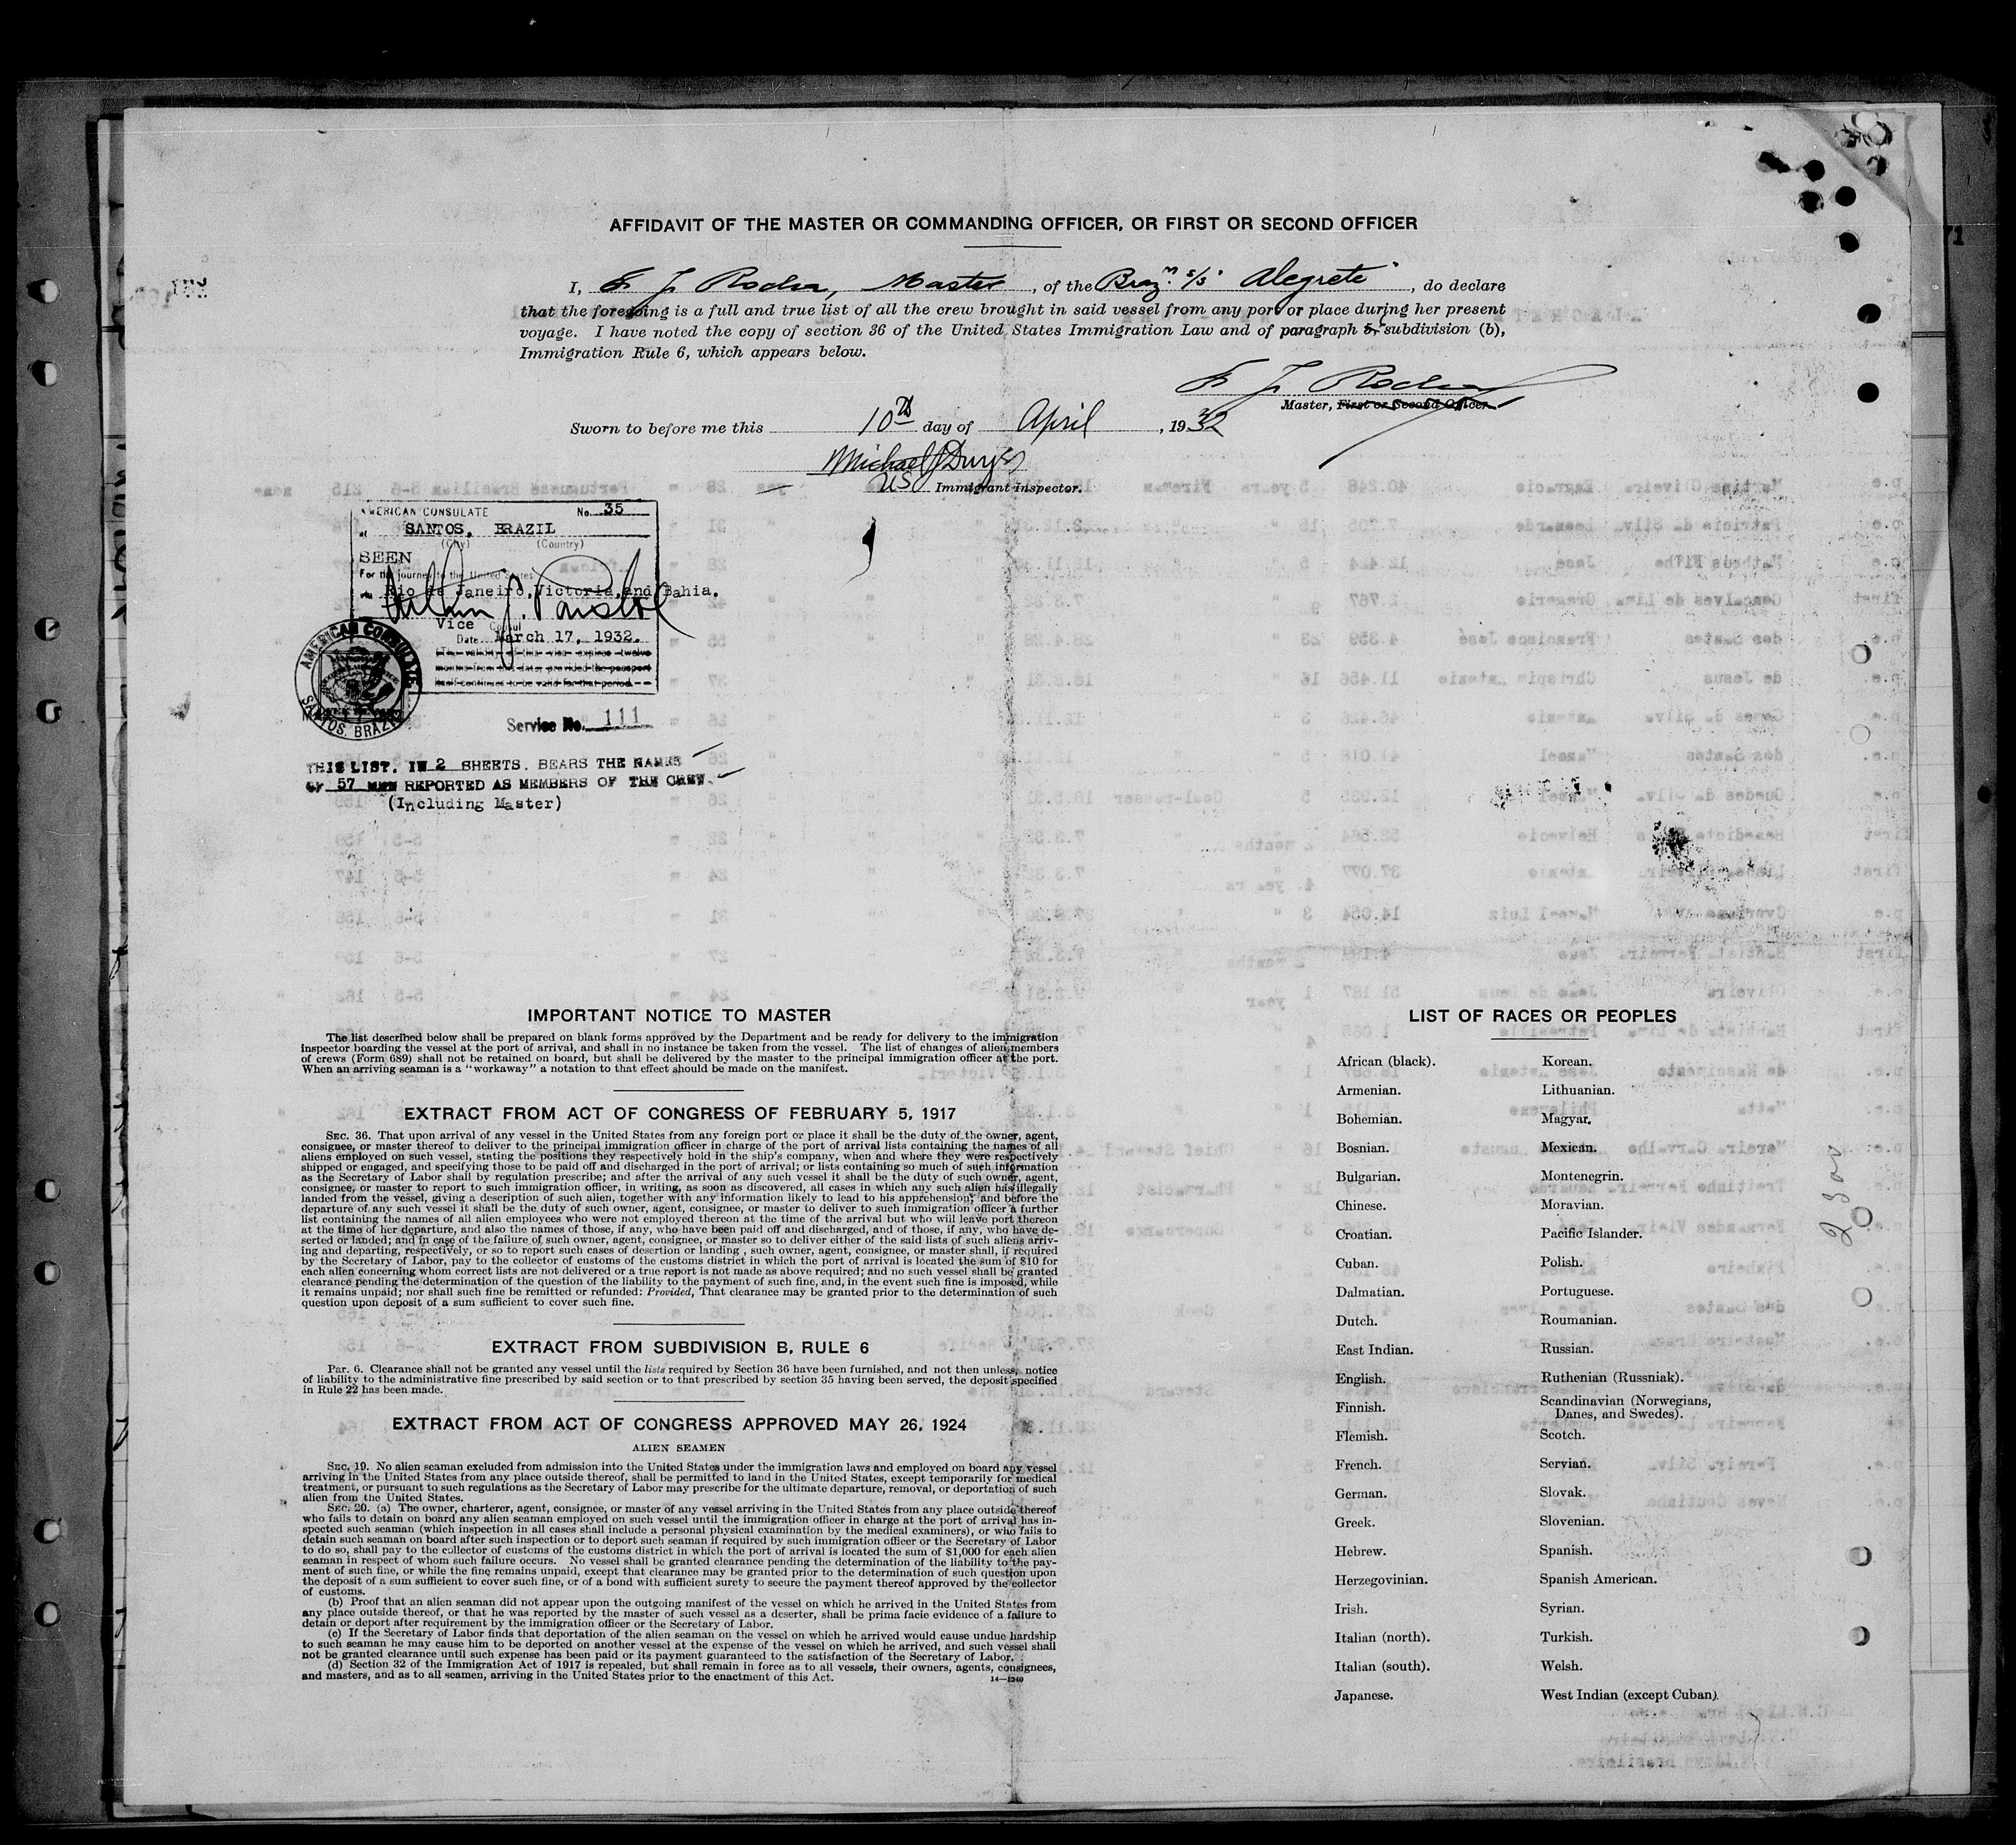 AFFIDAVIT OF THE MASTER OR COMMANDING OFFICER, OR FIRST OR SECOND OFFICER
I, F J Rocha, Master, of the Braz.n s/s "Alegrete", do declare
that the foregoing is a full and true list of all the crew brought in said vessel from any port or place during her present
voyage. I have noted the copy of section 36 of the United States Immigration Law and of paragraph 5, subdivision (b),
Immigration Rule 6, which appears below.
F J Rocha
Master, First or Second Officer.
Sworn to before me this 10th day of April, 1932
Michael J Dwyer
US Immigrant Inspector.
AMERICAN CONSULATE No. 35
at SANTOS, BRAZIL
(City) (Country)
SEEN
For the journey to the United States
via Rio de Janeiro, Victoria, and Bahia.
Vice Consul
Date March 17, 1932.
(The validity of this visa expires twelve
months from this date, provided the passport
itself continues to be valid for that period.
AMERICAN CONSULATE
SANTOS, BRAZIL
Service No. 111
THIS LIST, IN 2 SHEETS, BEARS THE NAMES
OF 57 MEN REPORTED AS MEMBERS OF THE CREW.
(Including Master)
IMPORTANT NOTICE TO MASTER
The list described below shall be prepared on blank forms approved by the Department and be ready for delivery to the immigration
inspector boarding the vessel at the port of arrival, and shall in no instance be taken from the vessel. The list of changes of alien members
of crews (Form 689) shall not be retained on board, but shall be delivered by the master to the principal immigration officer at the port.
When an arriving seaman is a "workaway" a notation to that effect should be made on the manifest.
EXTRACT FROM ACT OF CONGRESS OF FEBRUARY 5, 1917
SEC. 36. That upon arrival of any vessel in the United States from any foreign port or place it shall be the duty of the owner, agent,
consignee, or master thereof to deliver to the principal immigration officer in charge of the port of arrival lists containing the names of all
aliens employed on such vessel, stating the positions they respectively hold in the ship's company, when and where they were respectively
shipped or engaged, and specifying those to be paid off and discharged in the port of arrival; or lists containing so much of such information
as the Secretary of Labor shall by regulation prescribe; and after the arrival of any such vessel it shall be the duty of such owner, agent,
consignee, or master to report to such immigration officer, in writing, as soon as discovered, all cases in which any such alien has illegally
landed from the vessel, giving a description of such alien, together with any information likely to lead to his apprehension; and before the
departure of any such vessel it shall be the duty of such owner, agent, consignee, or master to deliver to such immigration officer a further
list containing the names of all alien employees who were not employed thereon at the time of the arrival but who will leave port thereon
at the time of her departure, and also the names of those, if any, who have been paid off and discharged, and of those, if any, who have de-
serted or landed; and in case of the failure of such owner, agent, consignee, or master so to deliver either of the said lists of such aliens arriv-
ing and departing, respectively, or so to report such cases of desertion or landing , such owner, agent, consignee, or master shall, if required
by the Secretary of Labor, pay to the collector of customs of the customs district in which the port of arrival is located the sum of $10 for
each alien concerning whom correct lists are not delivered or a true report is not made as above required; and no such vessel shall be granted
clearance pending the determination of the question of the liability to the payment of such fine, and, in the event such fine is imposed, while
it remains unpaid; nor shall such fine be remitted or refunded: Provided, That clearance may be granted prior to the determination of such
question upon deposit of a sum sufficient to cover such fine.
EXTRACT FROM SUBDIVISION B, RULE 6
Par. 6. Clearance shall not be granted any vessel until the lists required by Section 36 have been furnished, and not then unless, notice
of liability to the administrative fine prescribed by said section or to that prescribed by section 35 having been served, the deposit specified
in Rule 22 has been made.
EXTRACT FROM ACT OF CONGRESS APPROVED MAY 26, 1924
ALIEN SEAMEN
SEC. 19. No alien seaman excluded from admission into the United States under the immigration laws and employed on board any vessel
arriving in the United States from any place outside thereof, shall be permitted to land in the United States, except temporarily for medical
treatment, or pursuant to such regulations as the Secretary of Labor may prescribe for the ultimate departure, removal, or deportation of such
alien from the United States.
SEC. 20. (a) The owner, charterer, agent, consignee, or master of any vessel arriving in the United States from any place outside thereof
who fails to detain on board any alien seaman employed on such vessel until the immigration officer in charge at the port of arrival has in-
spected such seaman (which inspection in all cases shall include a personal physical examination by the medical examiners), or who fails to
detain such seaman on board after such inspection or to deport such seaman if required by such immigration officer or the Secretary of Labor
to do so, shall pay to the collector of customs of the customs district in which the port of arrival is located the sum of $1,000 for each alien
seaman in respect of whom such failure occurs. No vessel shall be granted clearance pending the determination of the liability to the pay-
ment of such fine, or while the fine remains unpaid, except that clearance may be granted prior to the determination of such question upon
the deposit of a sum sufficient to cover such fine, or of a bond with sufficient surety to secure the payment thereof approved by the collector
of customs.
(b) Proof that an alien seaman did not appear upon the outgoing manifest of the vessel on which he arrived in the United States from
any place outside thereof, or that he was reported by the master of such vessel as a deserter, shall be prima facie evidence of a failure to
detain or deport after requirement by the immigration officer or the Secretary of Labor.
(c) If the Secretary of Labor finds that deportation of the alien seaman on the vessel on which he arrived would cause undue hardship
to such seaman he may cause him to be deported on another vessel at the expense of the vessel on which he arrived, and such vessel shall
not be granted clearance until such expense has been paid or its payment guaranteed to the satisfaction of the Secretary of Labor.
(d) Section 32 of the Immigration Act of 1917 is repealed, but shall remain in force as to all vessels, their owners, agents, consignees,
and masters, and as to all seamen, arriving in the United States prior to the enactment of this Act.
14—1240
LIST OF RACES OR PEOPLES
African (black).
Armenian.
Bohemian.
Bosnian.
Bulgarian.
Chinese.
Croatian.
Cuban.
Dalmatian.
Dutch.
East Indian.
English.
Finnish.
Flemish.
French.
German.
Greek.
Hebrew.
Herzegovinian.
Irish.
Italian (north).
Italian (south).
Japanese.
Korean.
Lithuanian.
Magyar.
Mexican.
Montenegrin.
Moravian.
Pacific Islander.
Polish.
Portuguese.
Roumanian.
Russian.
Ruthenian (Russniak).
Scandinavian (Norwegians,
Danes, and Swedes).
Scotch.
Servian.
Slovak.
Slovenian.
Spanish.
Spanish American.
Syrian.
Turkish.
Welsh.
West Indian (except Cuban).